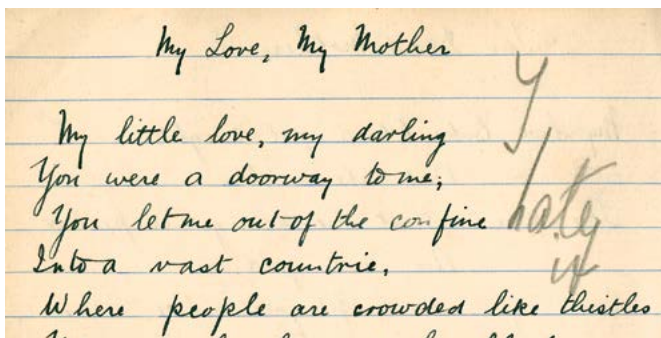 My Love, My Mother
My little love, my darling
You were a doorway to me;
You let me out of the confine
Into a vast countrie,
Where people are crowded like thistles
I
hate
it